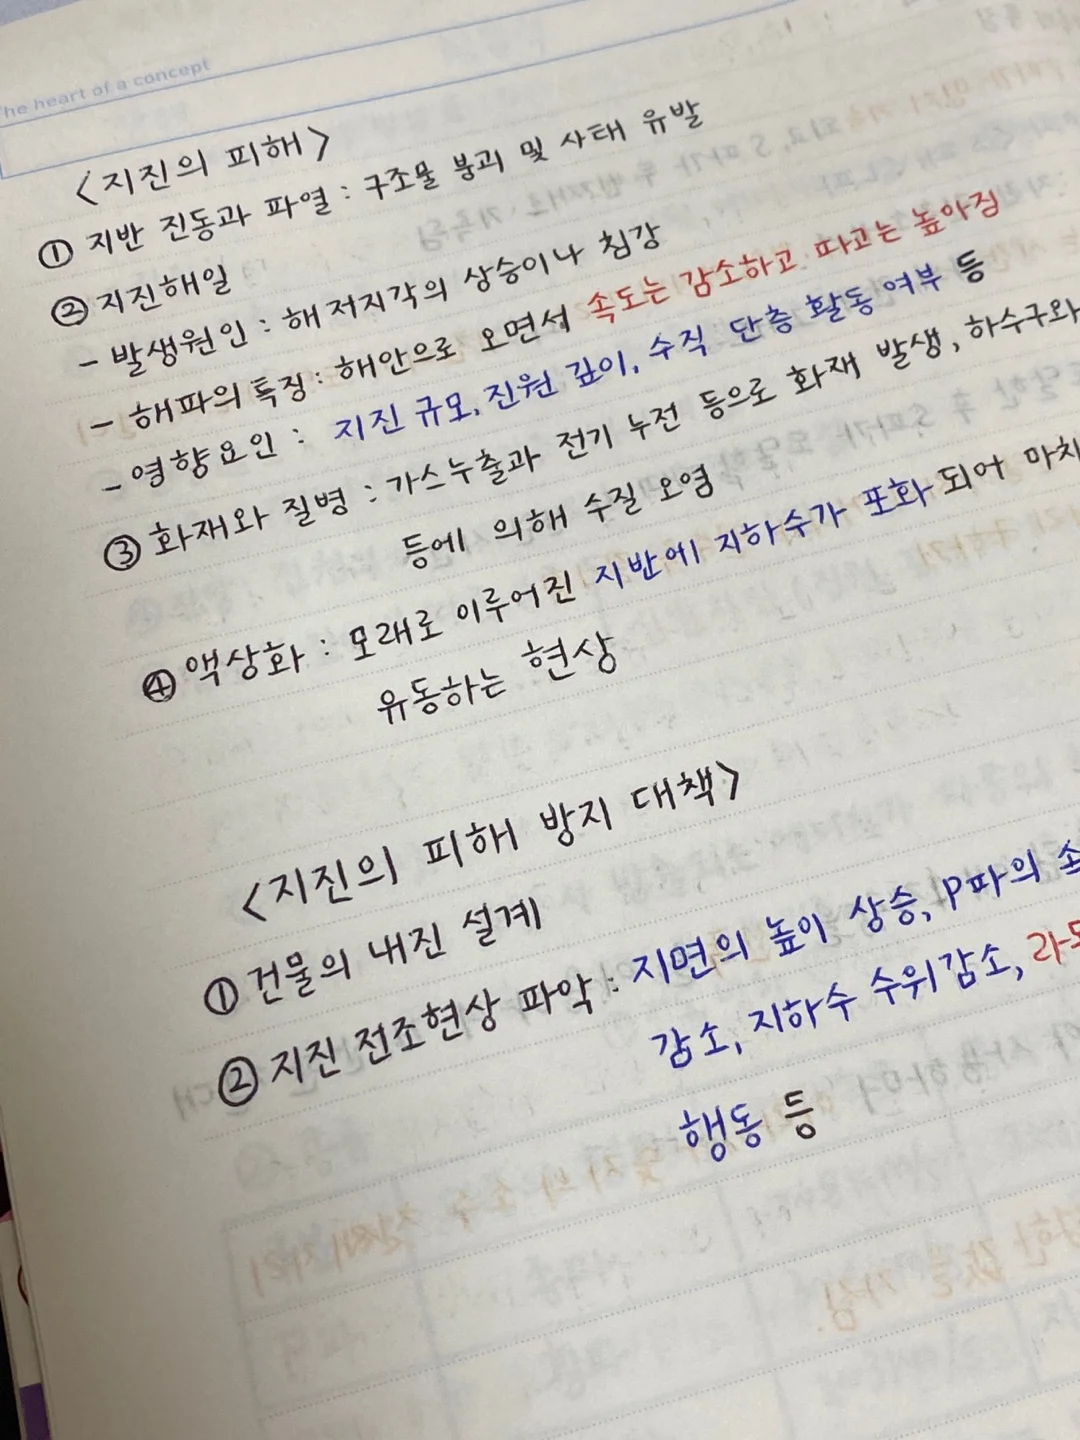 he heart of a concept
<지진의 피해>
① 지반 진동과 파열 : 구조물 붕괴 및 사태 유발
② 지진해일
- 발생원인 : 해저지각의 상승이나 침강
- 해파의 특징 : 해안으로 오면서 속도는 감소하고 파고는 높아짐
- 영향요인 : 지진 규모, 진원 깊이, 수직 단층 활동 여부 등
③ 화재와 질병 : 가스누출과 전기 누전 등으로 화재 발생, 하수구와
등에 의해 수질 오염
④ 액상화 : 모래로 이루어진 지반에 지하수가 포화되어 마치
유동하는 현상
<지진의 피해 방지 대책>
① 건물의 내진 설계
② 지진 전조현상 파악 : 지면의 높이 상승, P파의 속
감소, 지하수 수위 감소, 라
행동 등